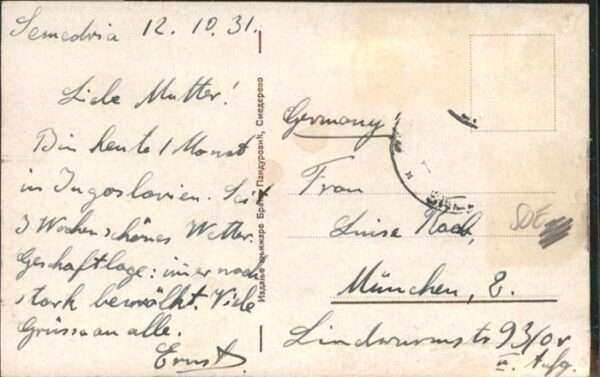 Semedria 12. 10. 31.
Liebe Mutter!
Bin heute 1 Monat
in Jugoslavien. Seit
3 Wochen schönes Wetter.
Geschäftlage: immer noch
stark bewölkt. Viele
Grüsse an alle.
Ernst
Издање књижаре Браће Пандуровић, Смедерево
Germany!
Frau
Luise
München, 2.
Lindwurmstr 93/0r
II. Aufg.
SDE